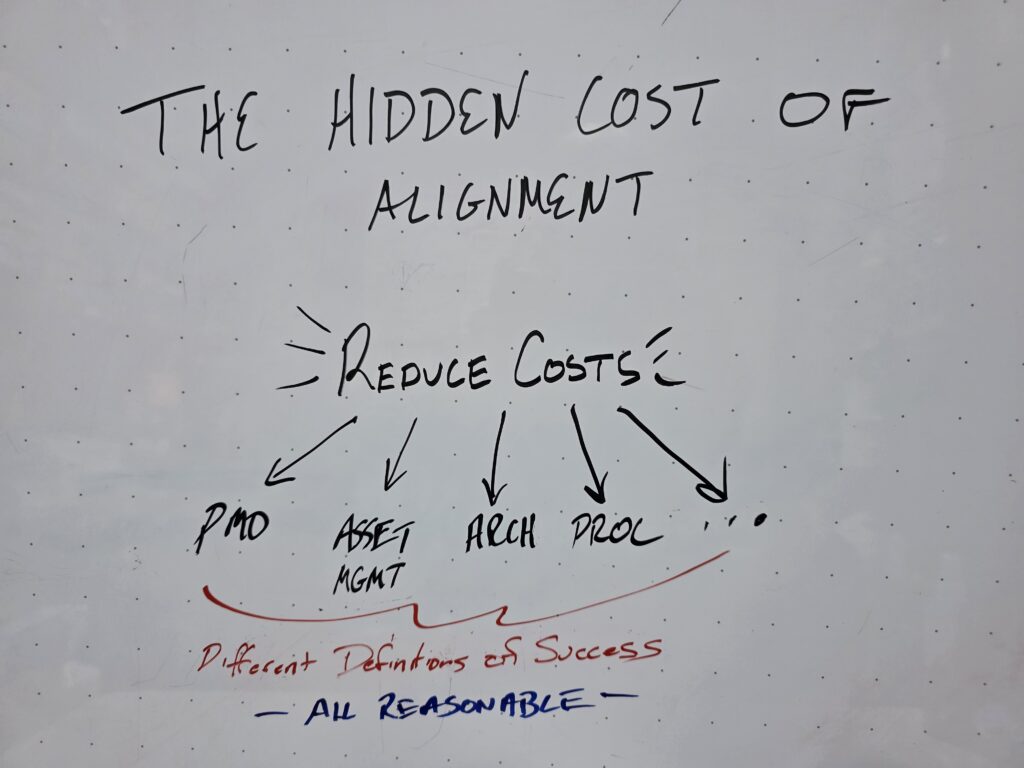 THE HIDDEN COST OF
ALIGNMENT
REDUCE COSTS
PMO ASSET MGMT ARCH PROC ...
Different Definitions of Success
- ALL REASONABLE -